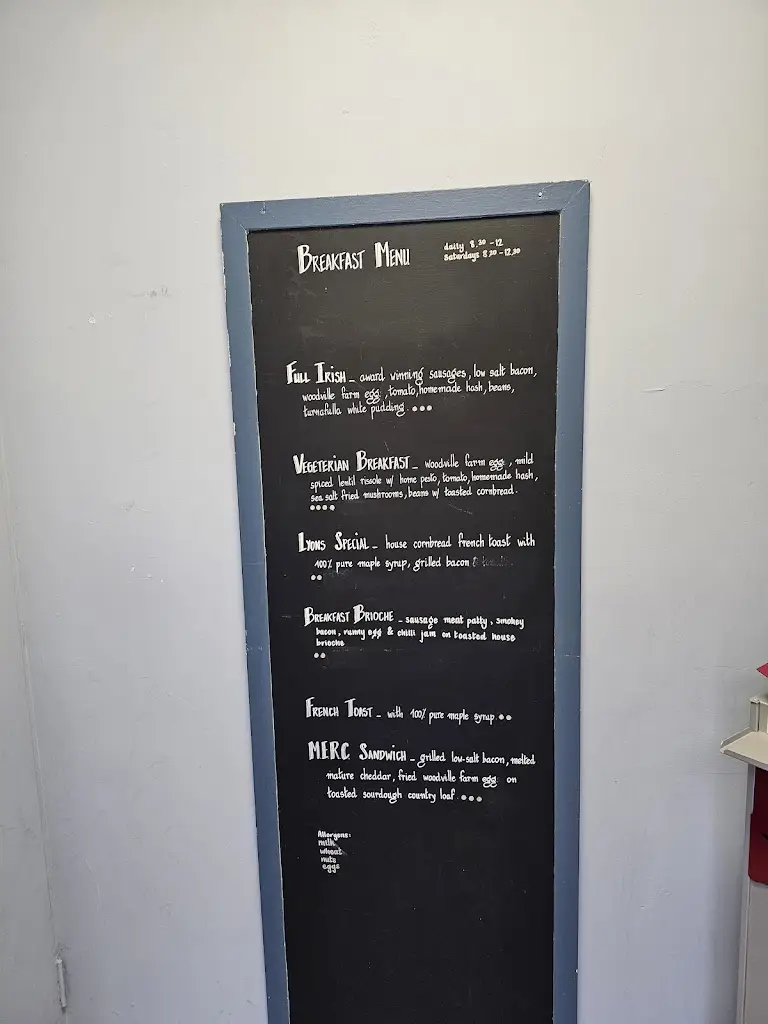 BREAKFAST MENU
daily 8.30 - 12
Saturdays 8.30 - 12.30
FULL IRISH _ award winning sausages, low salt bacon,
woodville farm egg, tomato, homemade hash, beans,
turnafulla white pudding. •••
VEGETERIAN BREAKFAST _ woodville farm egg, mild
spiced lentil rissole w/ home pesto, tomato, homemade hash,
sea salt fried mushrooms, beans w/ toasted cornbread.
••••
LYONS SPECIAL _ house cornbread french toast with
100% pure maple syrup, grilled bacon
••
BREAKFAST BRIOCHE _ sausage meat patty, smokey
bacon, runny egg & chilli jam on toasted house
brioche
••
FRENCH TOAST _ with 100% pure maple syrup ••
MERC SANDWICH _ grilled low-salt bacon, melted
mature cheddar, fried woodville farm egg on
toasted sourdough country loaf. •••
Allergens:
milk
wheat
nuts
eggs